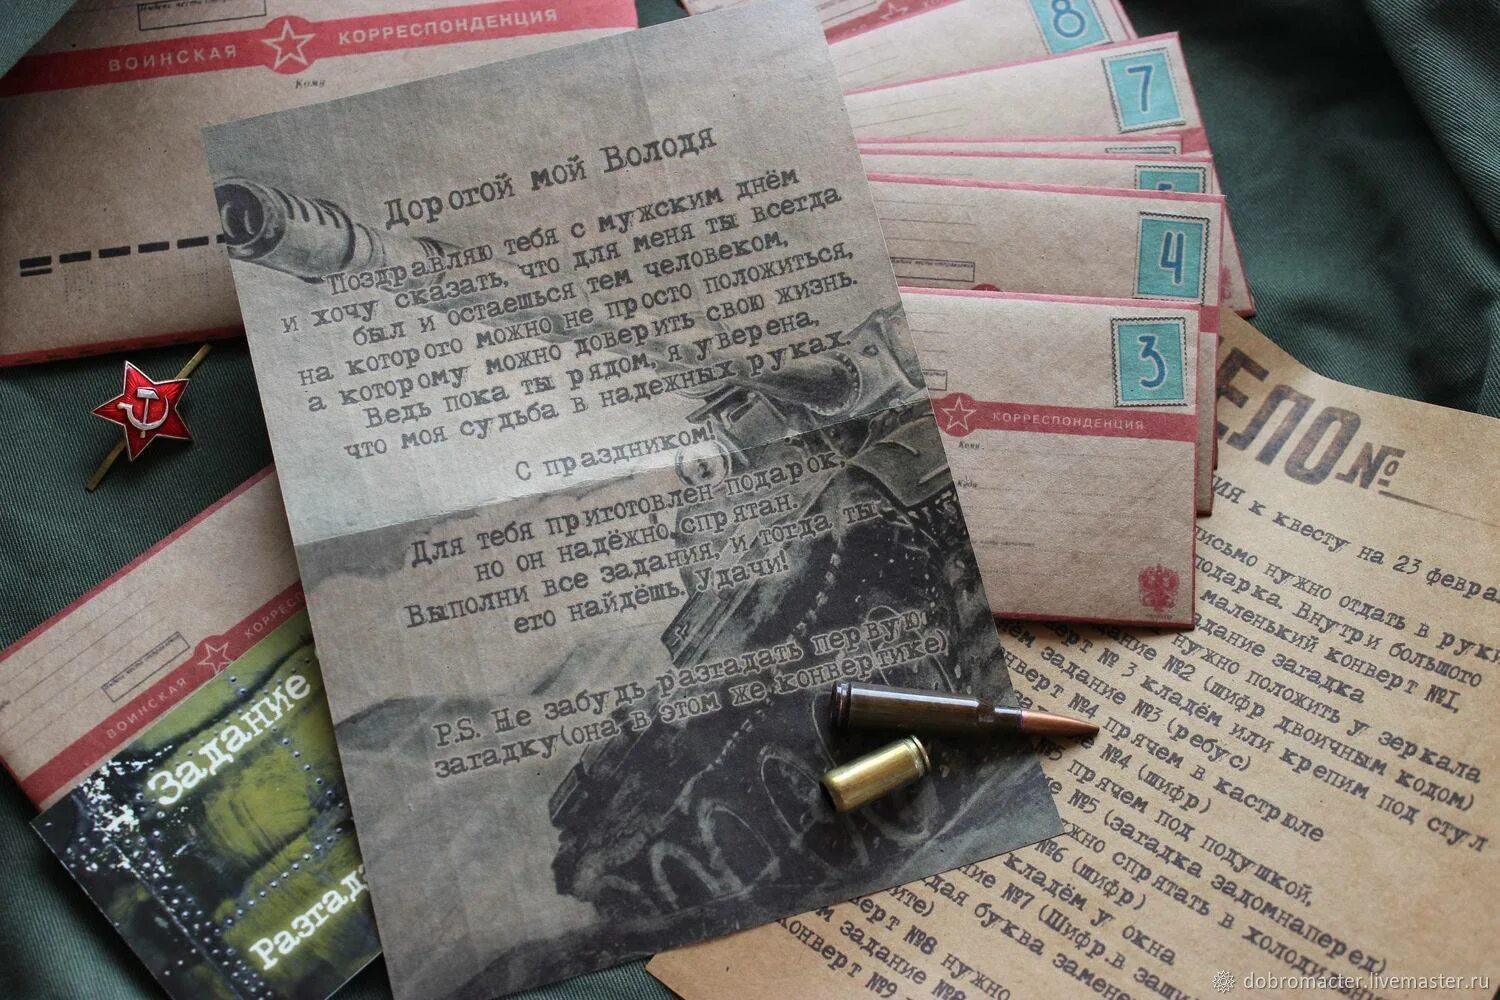 ВОИНСКАЯ КОРРЕСПОНДЕНЦИЯ
Кому
8
7
5
4
3
КОРРЕСПОНДЕНЦИЯ
Кому
Куда
Дорогой мой Володя
Поздравляю тебя с мужским днём
и хочу сказать, что для меня ты всегда
был и остаешься тем человеком,
на которого можно не просто положиться,
а которому можно доверить свою жизнь.
Ведь пока ты рядом, я уверена,
что моя судьба в надежных руках.
С праздником!
Для тебя приготовлен подарок,
но он надёжно спрятан.
Выполни все задания, и тогда ты
его найдёшь. Удачи!
P.S. Не забудь разгадать первую
загадку(она в этом же конвертике)
ВОИНСКАЯ КОРРЕСП
Задание
Разгад
ЕЛО №
ИЯ к квесту на 23 февра
исьмо нужно отдать в руки
подарка. Внутри большого
маленький конверт №1,
дание загадка
дание №2 (шифр двоичным кодом)
нужно положить у зеркала
ерт № 3 кладём или крепим под стул
ём задание №3 (ребус)
нверт №4 прячем в кастрюле
№4 (шифр)
№5 прячем под подушкой,
е №5 (загадка задомнаперед)
жно спрятать в холоди
№6 (шифр)
кладём у окна
ние №7 (Шифр.в
дая буква замене
ите)
верт №8 нужно
м задание №8
конверт №9
dobromacter.livemaster.ru